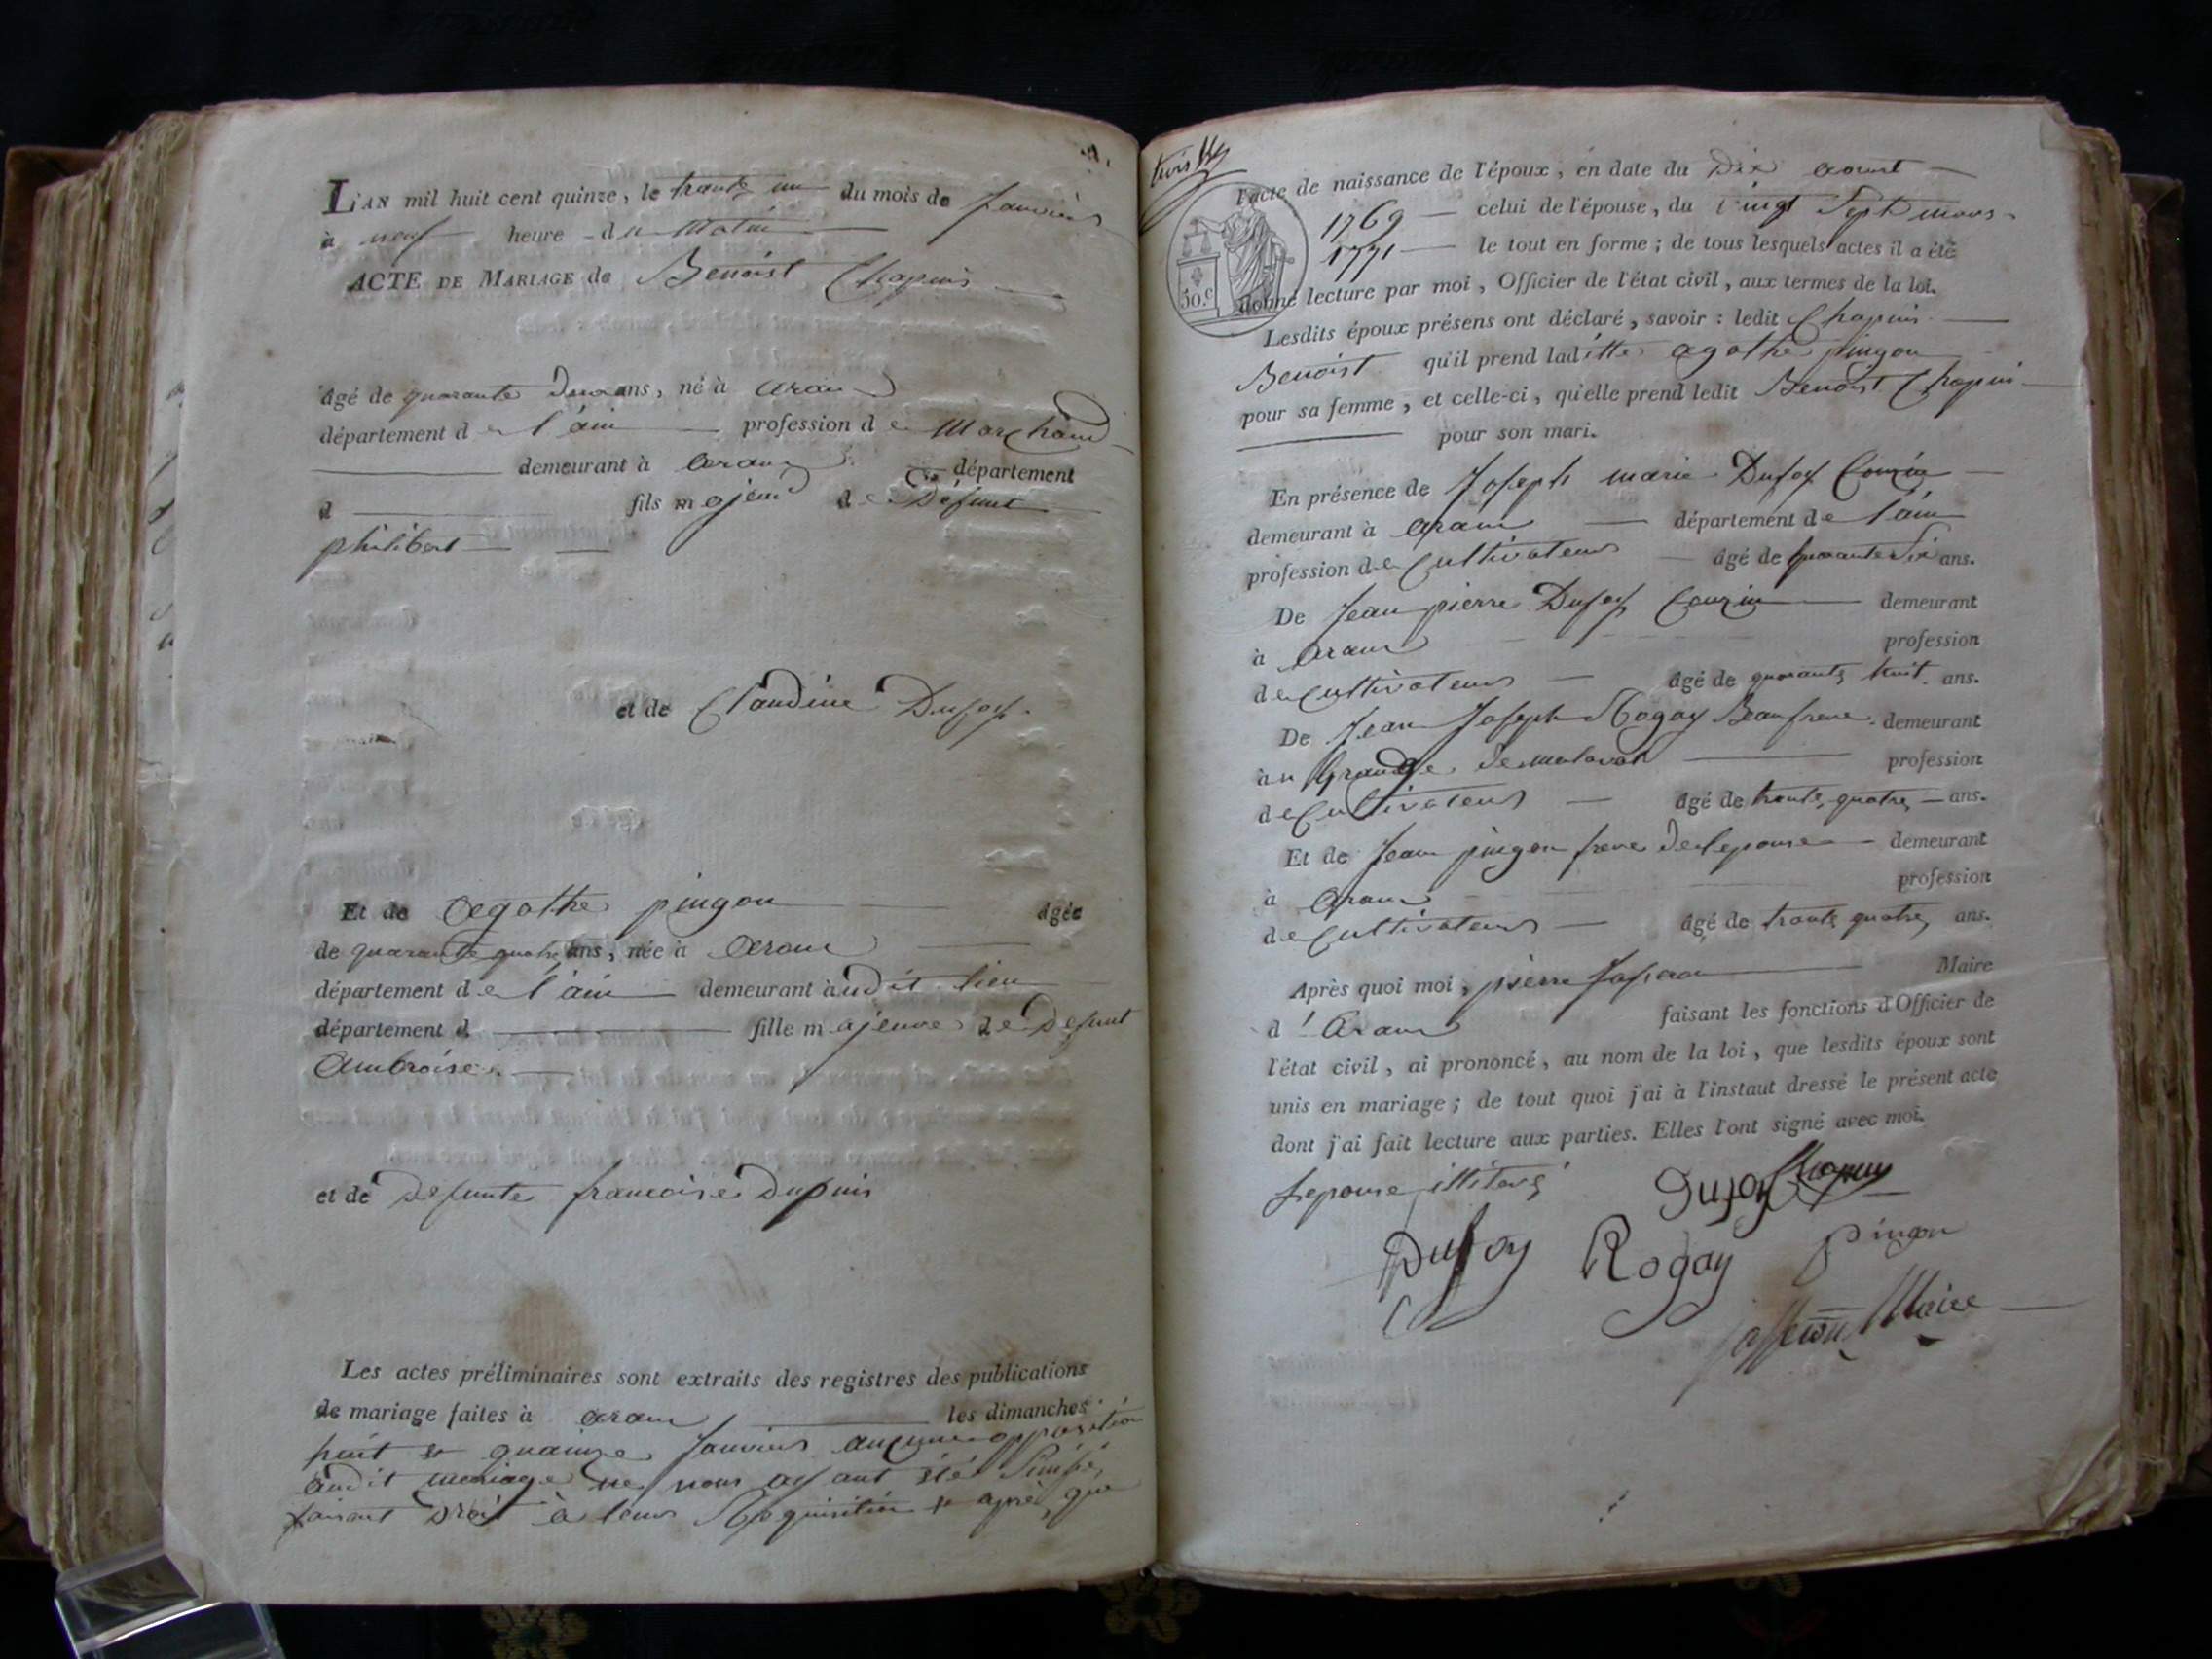 L'AN mil huit cent quinze, le trante un du mois de Janvier
à neuf heure du Matin
ACTE DE MARIAGE de Benoist Chapuis
âgé de quarante deux ans, né à aranc
département de l'ain profession de Marchand
demeurant à aranc département
d fils majeur de Défunt
philibert
et de Claudine Dufoy
Et de agathe pingon âgée
de quarante quatre ans, née à aranc
département de l'ain demeurant audit lieu
département d fille majeure de Defunt
Ambroise
et de Defunte francoise Dupuis
Les actes préliminaires sont extraits des registres des publications
de mariage faites à aranc les dimanches
huit et quainze Janvier aucune opposition
audit mariage ne nous ayant été
faisant Droit à leur Requisition et après que
l'acte de naissance de l'époux, en date du Dix aoust
1769 celui de l'épouse, du vingt Sept mars
1771 le tout en forme; de tous lesquels actes il a été
50.c
donné lecture par moi, Officier de l'état civil, aux termes de la loi.
Lesdits époux présens ont déclaré, savoir : ledit Chapuis
Benoist qu'il prend laditte agathe pingon
pour sa femme, et celle-ci, qu'elle prend ledit Benoist Chapuis
pour son mari.
En présence de Joseph marie Dufoy Couzin
demeurant à aranc département de l'ain
profession de Cultivateur âgé de quarante Six ans.
De Jean pierre Dufoy Couzin demeurant
à aranc profession
de Cultivateur âgé de quarante huit ans.
De Jean Joseph Rogay Beaufrere demeurant
au Grange de malaval profession
de Cultivateur âgé de trante quatre ans.
Et de Jean pingon frere de lepouse demeurant
à aranc profession
de Cultivateur âgé de trante quatre ans.
Après quoi moi, pierre Maire
d'Aranc faisant les fonctions d'Officier de
l'état civil, ai prononcé, au nom de la loi, que lesdits époux sont
unis en mariage; de tout quoi j'ai à l'instaut dressé le présent acte
dont j'ai fait lecture aux parties. Elles l'ont signé avec moi.
Lepouse illiteré Dufoy Chapuis
Dufoy Rogay Pingon
Maire